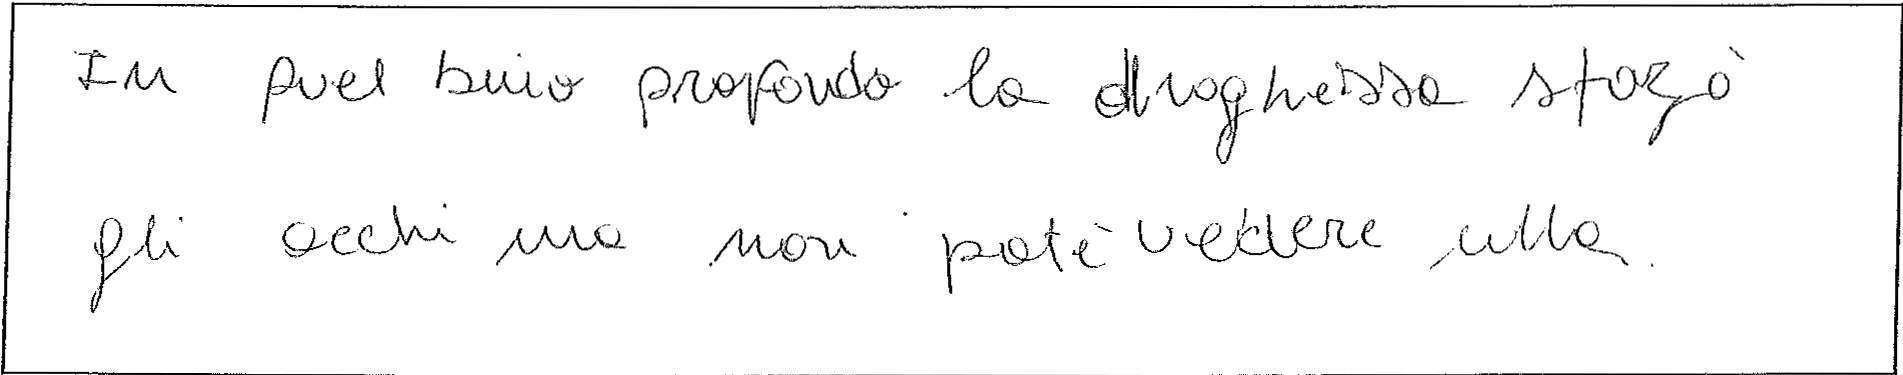 In quel buio profondo la draghessa sfozò
gli occhi ma non potè vedere ulla.